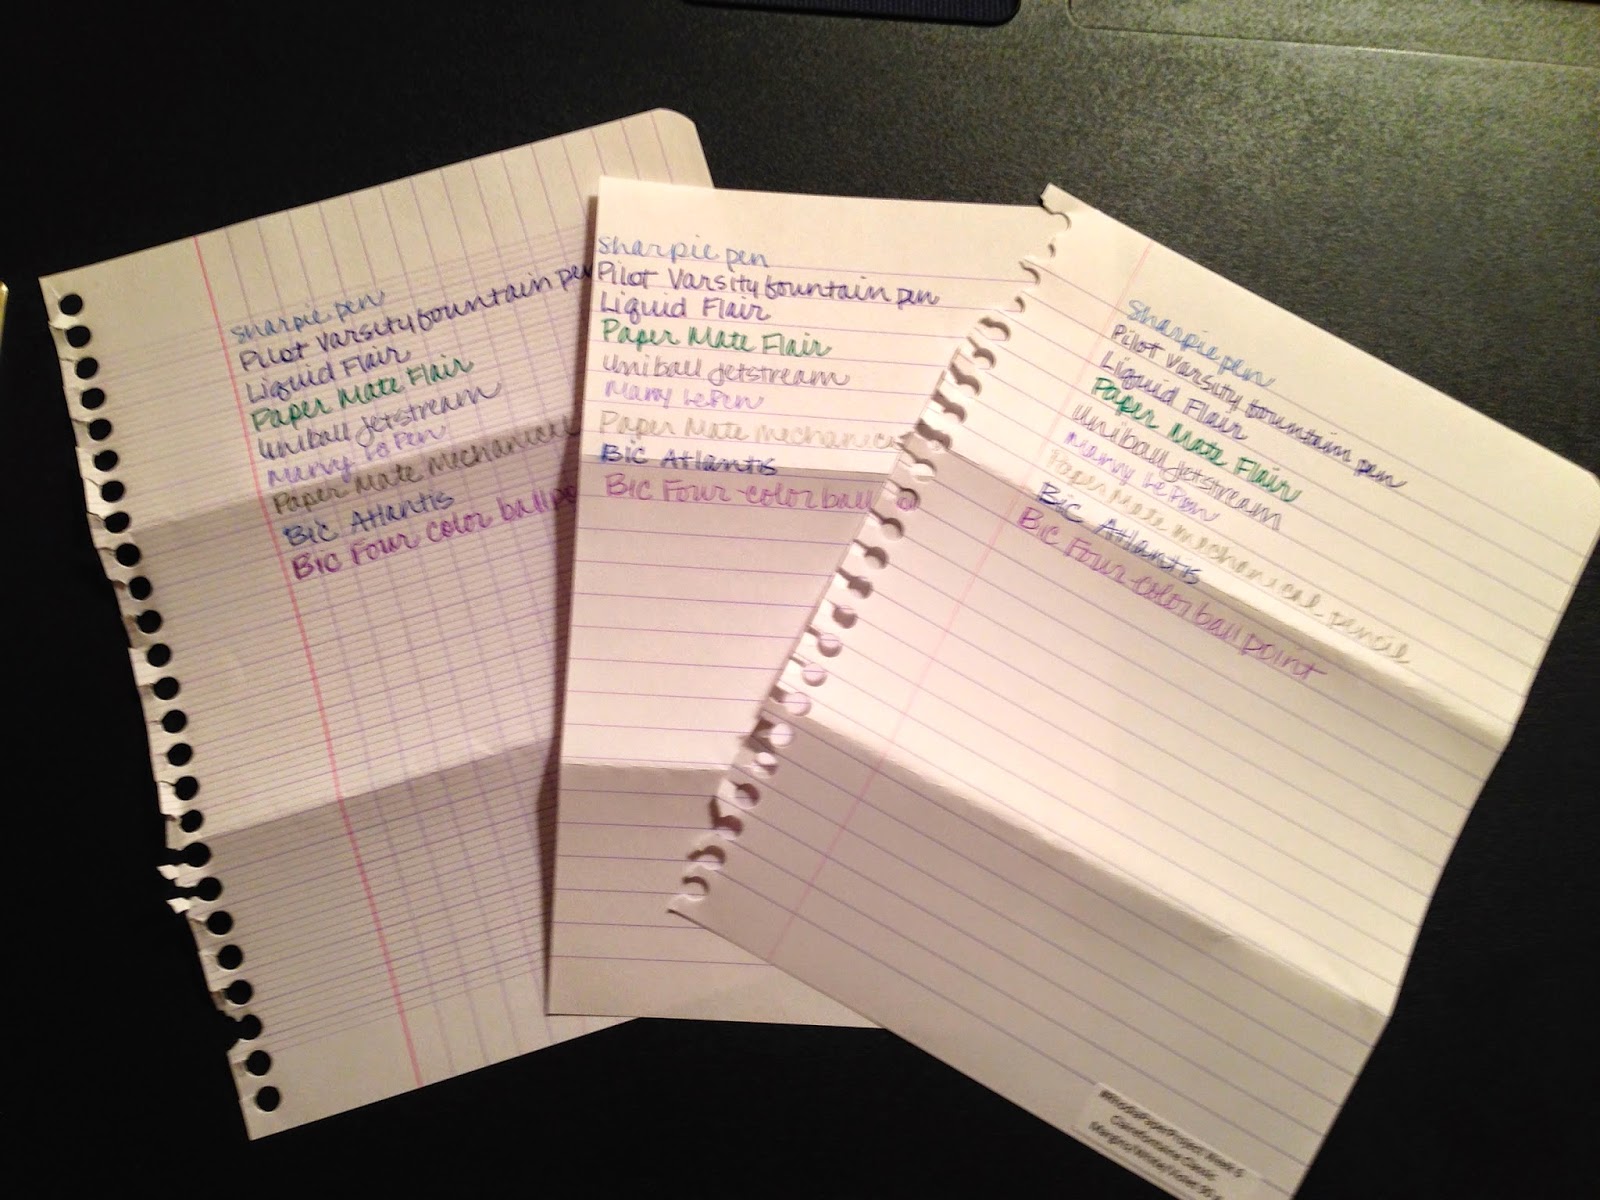 Sharpie pen
Pilot Varsity fountain pen
Liquid Flair
Paper Mate Flair
Uniball Jetstream
Marvy Le Pen
Paper Mate Mechanical
Bic Atlantis
Bic Four color ballpo
Sharpie pen
Pilot Varsity fountain pen
Liquid Flair
Paper Mate Flair
Uniball Jetstream
Marvy Le Pen
Paper Mate mechanical
Bic Atlantis
Bic Four-color ball
Sharpie pen
Pilot Varsity fountain pen
Liquid Flair
Paper Mate Flair
Uniball Jetstream
Marvy Le Pen
Paper Mate mechanical pencil
Bic Atlantis
Bic Four-color ball point
#RhodiaPaperProject Week 5
Clairefontaine Classic